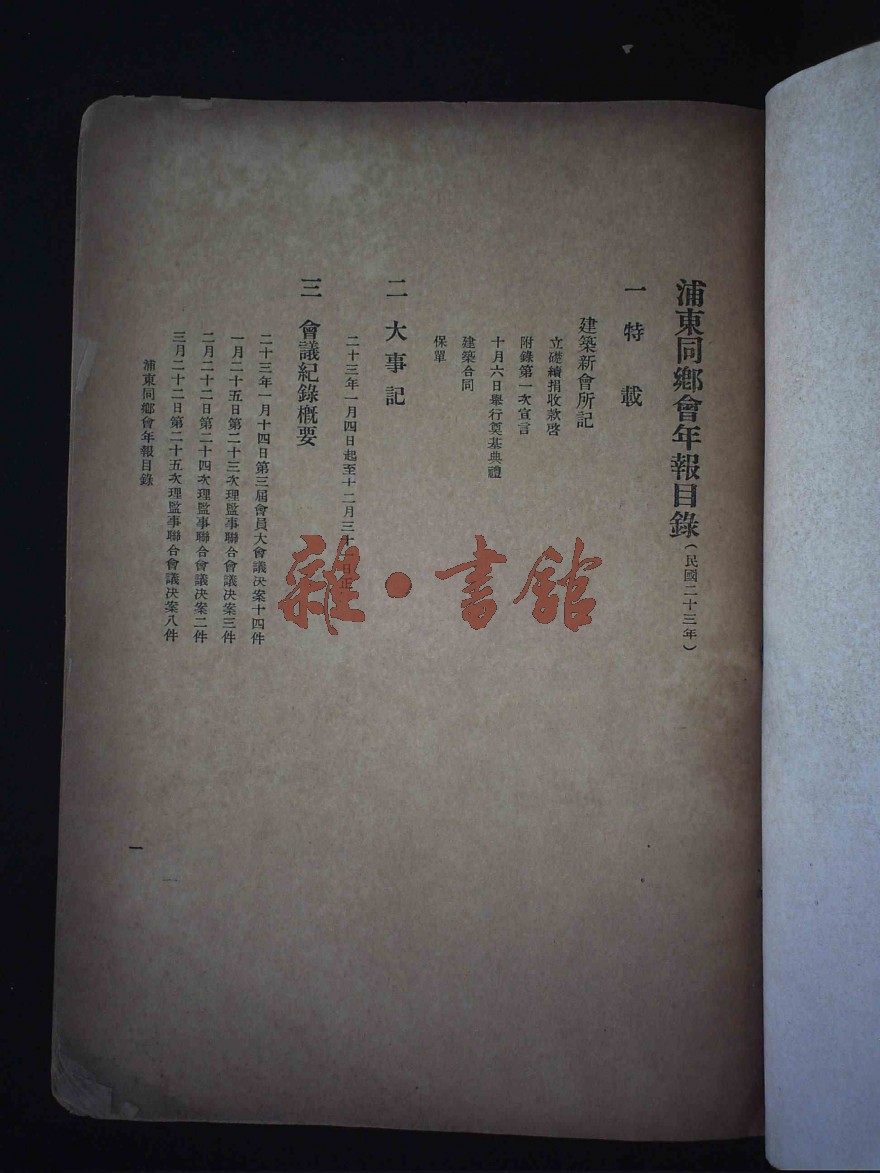 浦東同鄉會年報目錄（民國二十三年）
一 特載
建築新會所記
立礎續捐收款啓
附錄第一次宣言
十月六日舉行奠基典禮
建築合同
保單
二 大事記
二十三年一月四日起至十二月三十一日止
三 會議紀錄概要
二十三年一月十四日第三屆會員大會議決案十四件
一月二十五日第二十三次理監事聯合會議決案三件
二月二十二日第二十四次理監事聯合會議決案二件
三月二十二日第二十五次理監事聯合會議決案八件
浦東同鄉會年報目錄
一
雜·書館